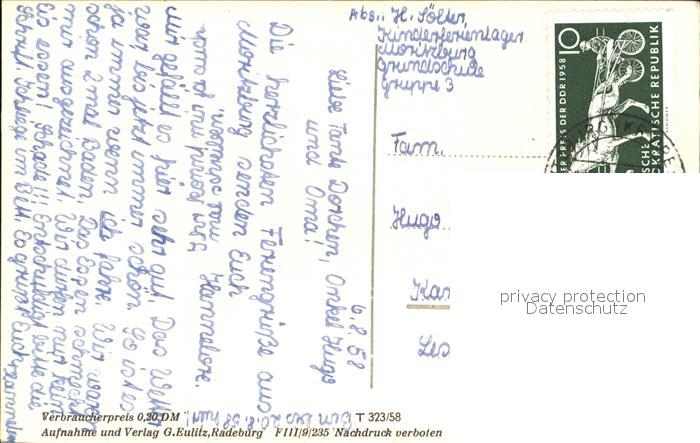 Abs.: H. Sölter,
Kinderferienlager
Moritzburg
Grundschule
Gruppe 3
10
PREIS DER DDR 1958
DEUTSCHE DEMOKRATISCHE REPUBLIK
Fam.
Hugo
privacy protection
Datenschutz
6.8.58
Liebe Tante Dorchen, Onkel Hugo
und Oma!
Die herzlichsten Feriengrüße aus
Moritzburg senden Euch
Hannelore.
mir gefällt es hier sehr gut. Das Wetter
war bis jetzt immer schön. Es ist es
ja immer wenn ich fahre. Wir waren
schon 2 mal baden. Das Essen schmeckt
mir ausgezeichnet. Wir dürfen nur kein
Eis essen! Schade!!! Entschuldigt bitte die
Schrift, schreibe im Bett. Es grüßt Euch
Bin bis 20.8.58 hier!
Verbraucherpreis 0,20 DM T 323/58
Aufnahme und Verlag G.Eulitz, Radeburg FIII/9/235 Nachdruck verboten